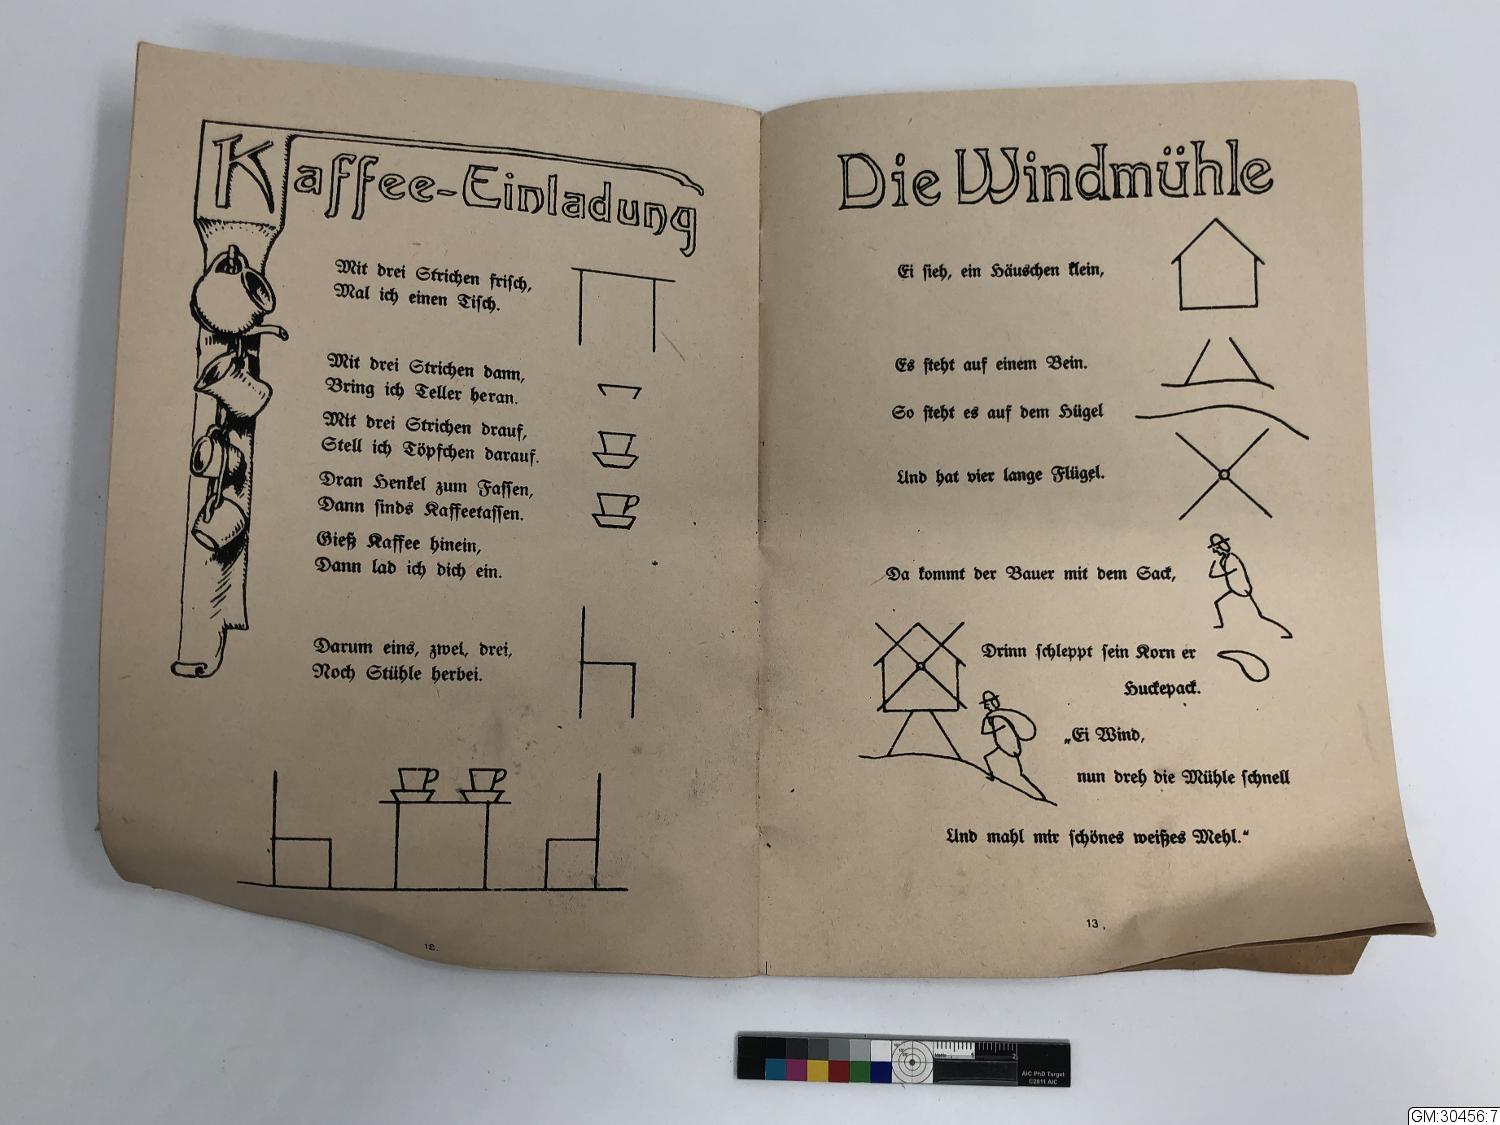 Kaffee-Einladung
Mit drei Strichen frisch,
Mal ich einen Tisch.
Mit drei Strichen dann,
Bring ich Teller heran.
Mit drei Strichen drauf,
Stell ich Töpfchen darauf.
Dran Henkel zum Fassen,
Dann sinds Kaffeetassen.
Gieß Kaffee hinein,
Dann lad ich dich ein.
Darum eins, zwei, drei,
Noch Stühle herbei.
12.
Die Windmühle
Ei sieh, ein Häuschen klein,
Es steht auf einem Bein.
So steht es auf dem Hügel
Und hat vier lange Flügel.
Da kommt der Bauer mit dem Sack,
Drinn schleppt sein Korn er
Huckepack.
„Ei Wind,
nun dreh die Mühle schnell
Und mahl mir schönes weißes Mehl.“
13.
AIC PhD Target
©2011 AIC
GM:30456:7